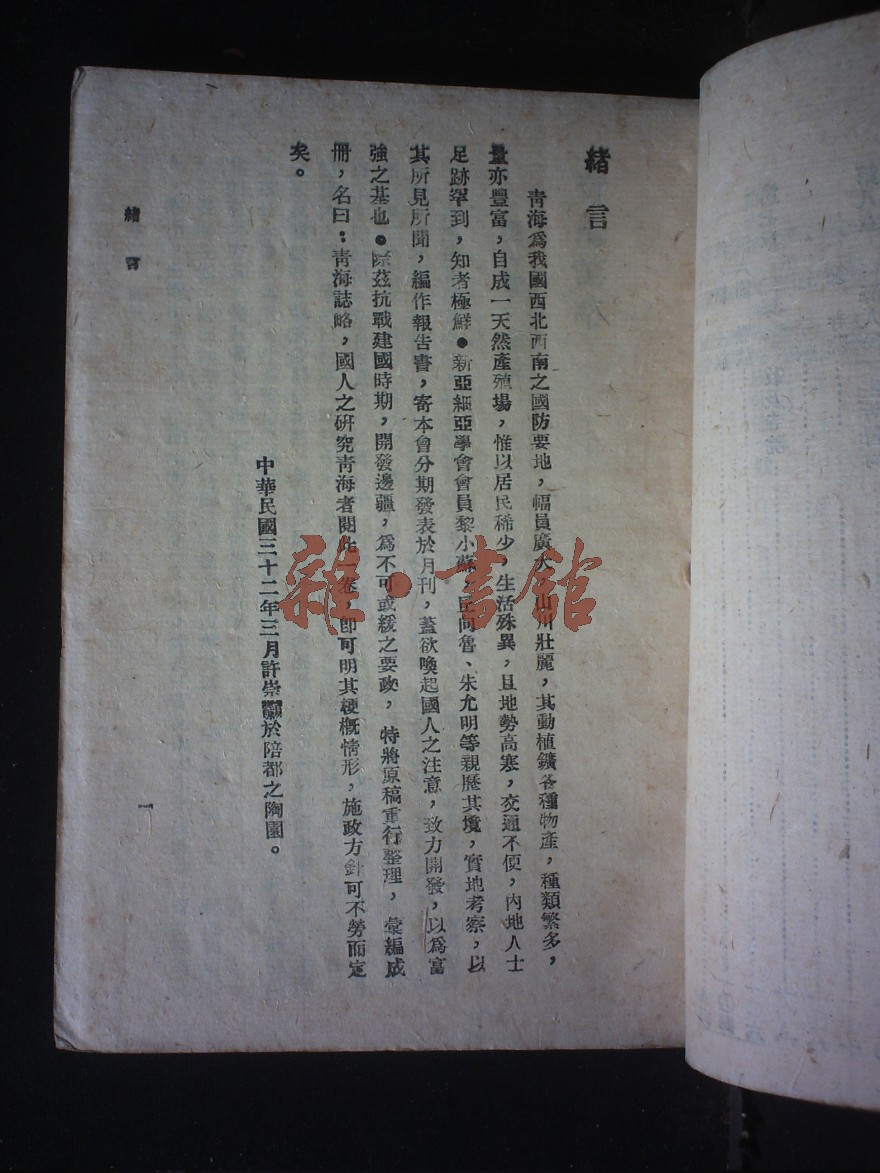 緒言
青海為我國西北西南之國防要地，幅員廣大，山川壯麗，其動植鑛各種物產，種類繁多，
量亦豐富，自成一天然產殖場，惟以居民稀少，生活殊異，且地勢高寒，交通不便，內地人士
足跡罕到，知者極鮮●新亞細亞學會會員黎小蘇，丘向魯、朱允明等親歷其境，實地考察，以
其所見所聞，編作報告書，寄本會分期發表於月刊，蓋欲喚起國人之注意，致力開發，以為富
強之基也●際茲抗戰建國時期，開發邊疆，為不可或緩之要政，特將原稿重行整理，彙編成
冊，名曰：青海誌略，國人之研究青海者閱此一卷，卽可明其梗概情形，施政方針可不勞而定
矣。
中華民國三十二年三月許崇灝於陪都之陶園。
緒言
一
雜·書館